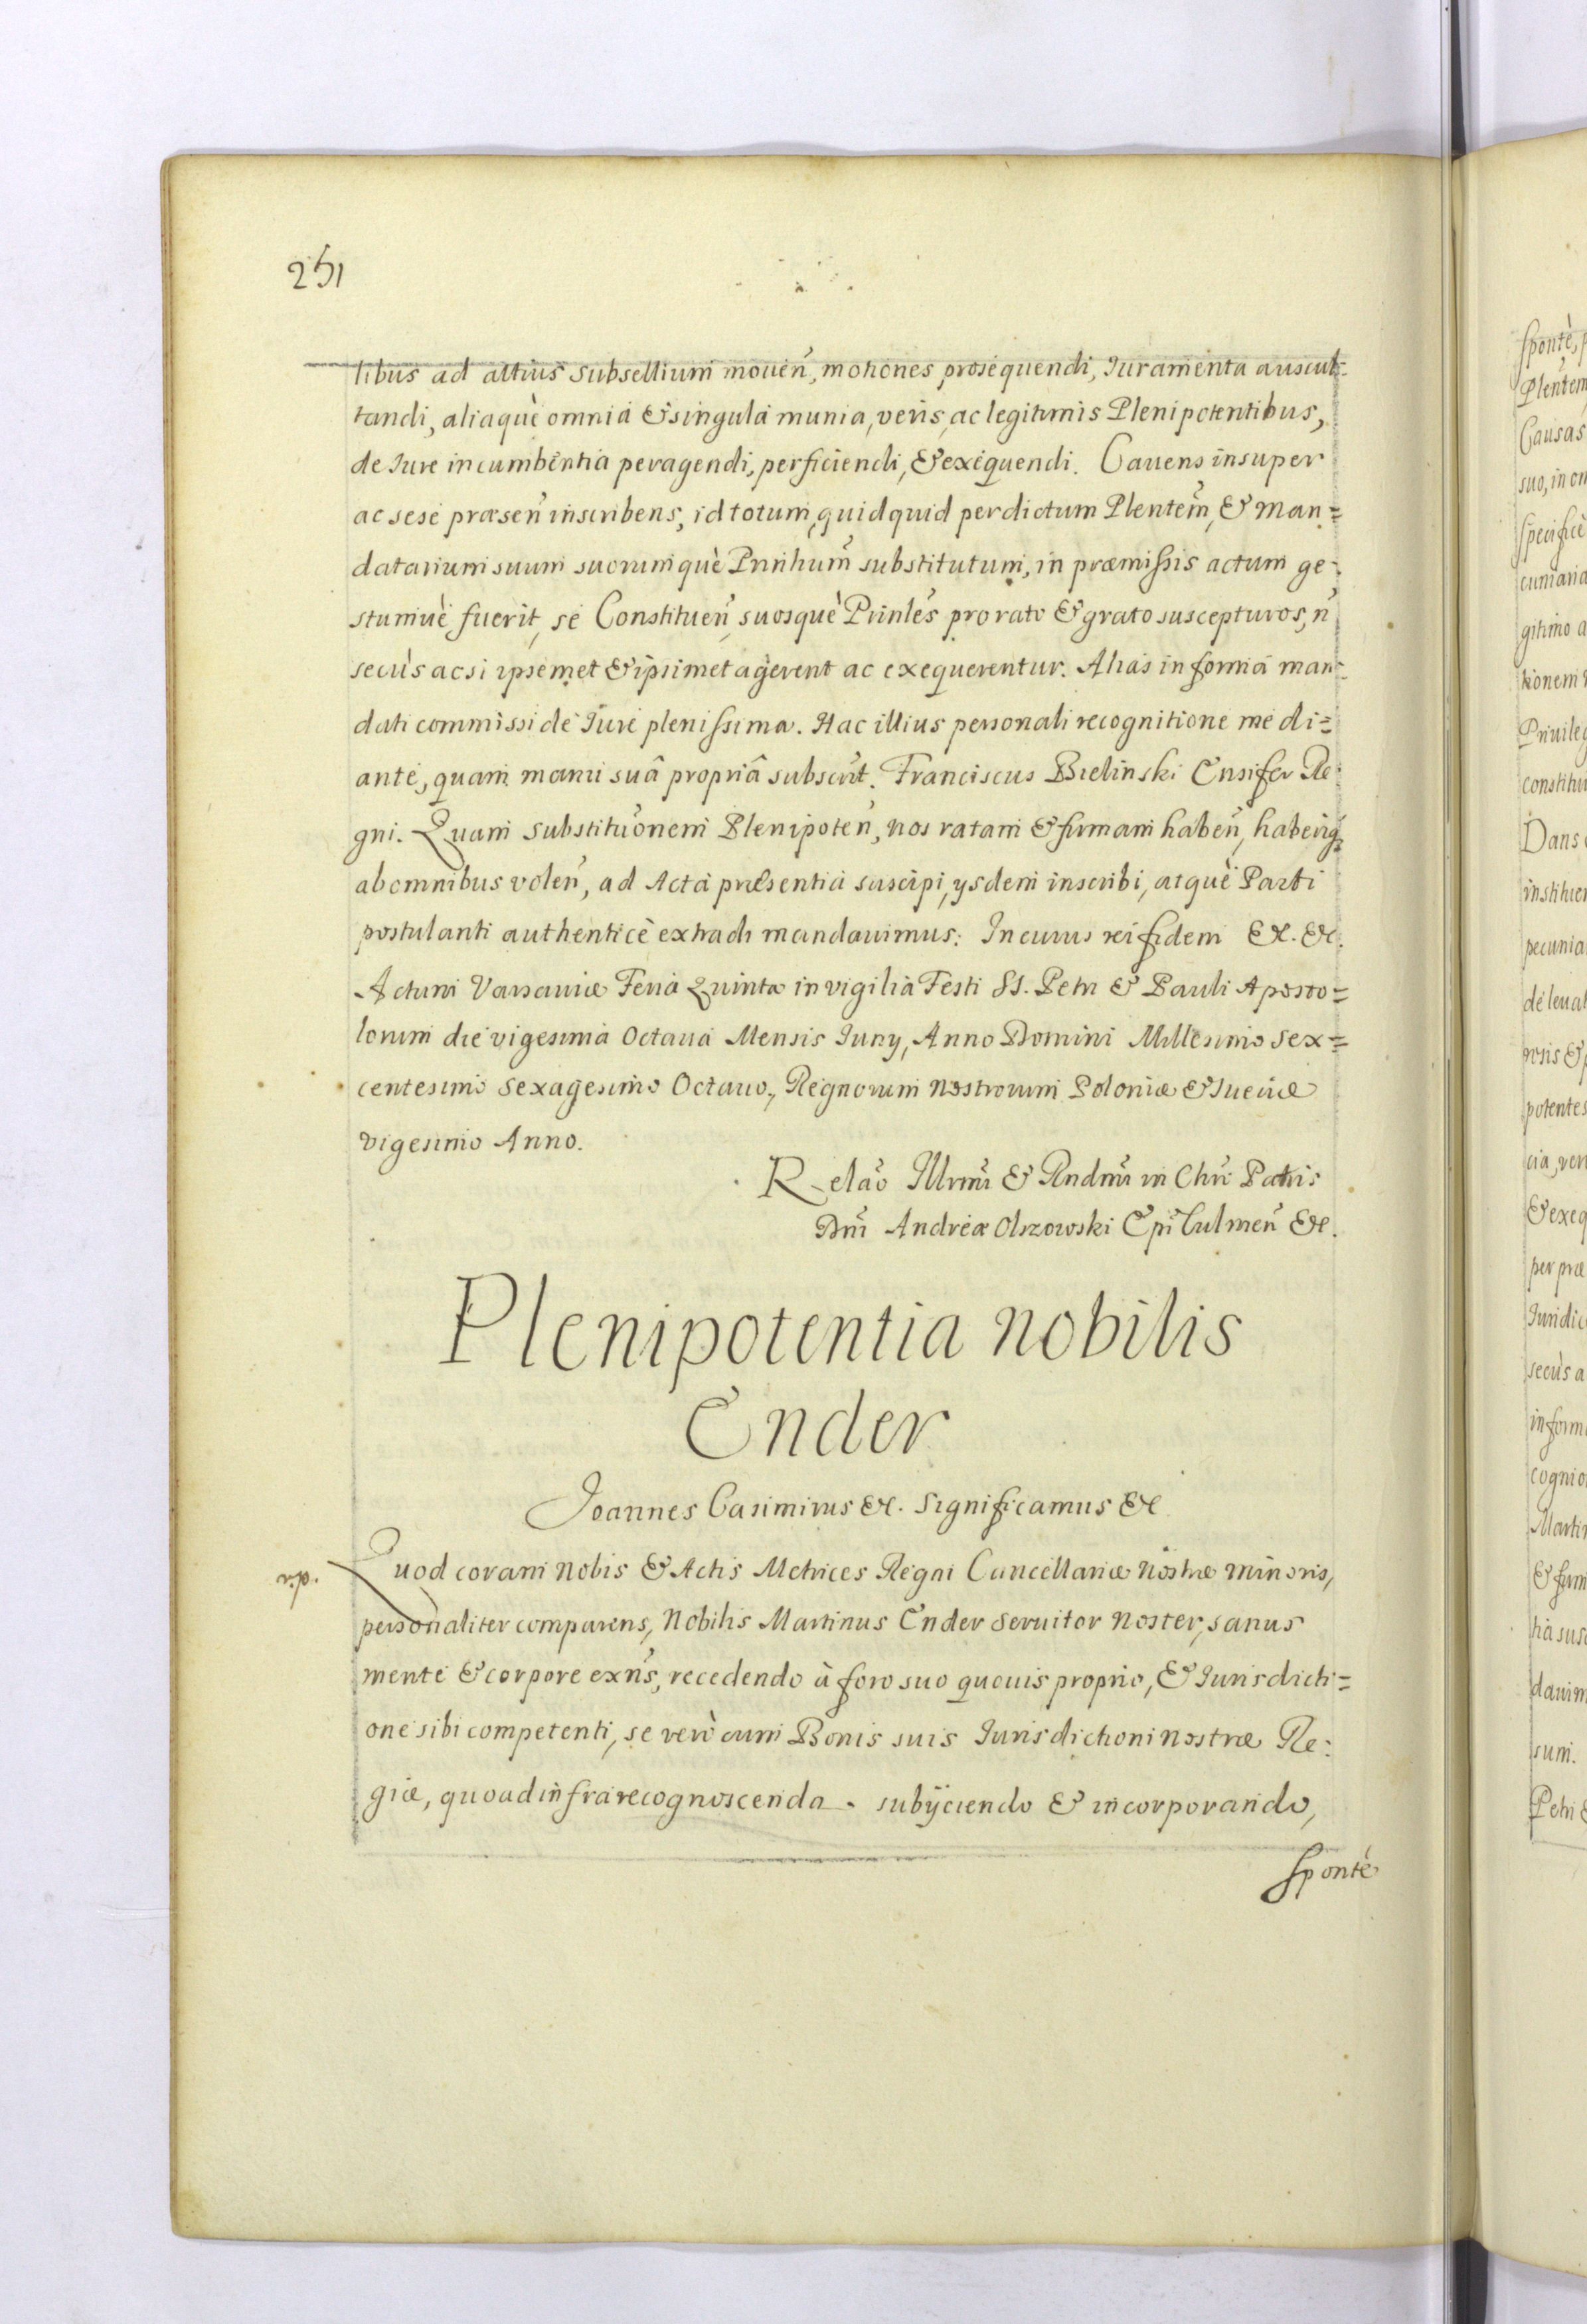 251
libus ad altius subsellium mouen̄, motiones prosequendi, Iuramenta auscul-
tandi, aliaquè omnia & singula munia, veris, ac legitimis Plenipotentibus,
de Iure incumbentia peragendi, perficiendi, & exequendi. Cauens insuper
ac sese præsen̄ inscribens, id totum, quidquid per dictum Plentem̄, & Man=
datarium suum suorumquè Prinlium̄ substitutum, in præmissis actum ge-
stumuè fuerit, se Constituen̄ suosquè Prinles̄ pro rato & grato suscepturos, n̄
secùs ac si ipsemet & ipsimet agerent ac exequerentur. Alias in forma man-
dati commissi de Iure plenissima. Hac illius personali recognitione medi=
ante, quam manu suâ propriâ subscrit̄. Franciscus Bielinski Ensifer Re-
gni. Quam substituōnem Plenipoten̄, nos ratam & firmam haben̄, haberiq3
ab omnibus volen̄, ad Acta præsentia suscipi, ysdem inscribi, atquè Parti
postulanti authenticè extradi mandauimus: In cuius rei fidem &c. &c.
Actum Varsauiæ Feria Quinta in vigilia Festi SS. Petri & Pauli Aposto=
lorum die vigesima Octaua Mensis Iuny, Anno Domini Millesimo sex=
centesimo sexagesimo Octauo, Regnorum nostrorum Poloniæ & Sueciæ
vigesimo Anno.
Relaō Illrmi & Rndmi in Chrō Patris
Dn̄i Andreæ Olszowski Epī Culmen̄ &c.
Plenipotentia nobilis
Ender
Joannes Casimirus &c. Significamus &c
Quod coram nobis & Actis Metrices Regni Cancellariæ nostræ minoris,
personaliter comparens, Nobilis Martinus Ender seruitor noster, sanus
mente & corpore exn̄s, recedendo à foro suo quouis proprio, & Iurisdicti=
one sibi competenti, se verò cum Bonis suis Iurisdictioni nostræ Re-
giæ, quoad infrarecognoscenda subyciendo & incorporando,
Spontè